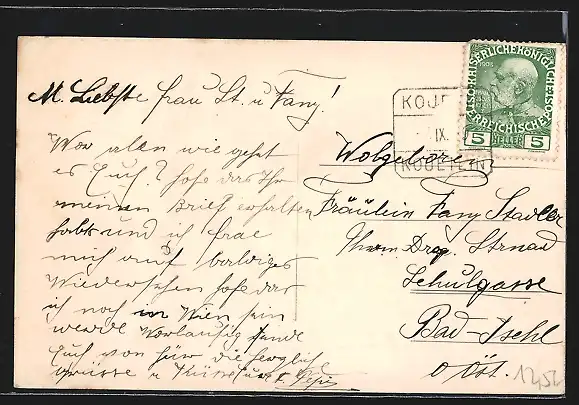 M. Liebste Frau St. u Fany!
Wor alem wie geht
es Euch? hofe das Ihr
meinen Brief erhalten
habt und ich freue
mich auf baldiges
Wiedersehen hofe das
ich noch in Wien sein
werde Worlaufig sende
Euch von hür die herzlich
Grüsse u Küsse
KAISERLICHE KÖNIGLICHE
ÖSTERREICHISCHE POST
1908
5 HELLER 5
IX
KOJETEIN
Wolgeborn
Fräulein Fany Stadler
Drog. Strnad
Schulgasse
Bad-Ischl
O Öst.
1252